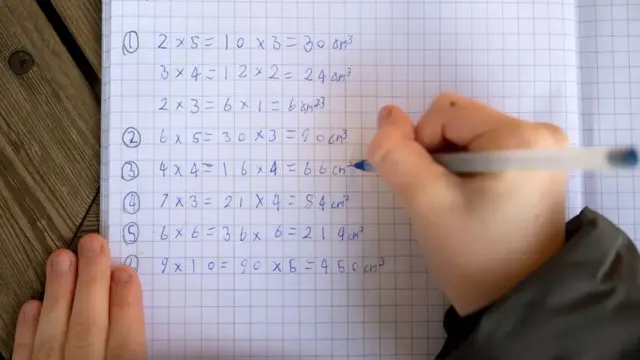 ① 2×5=10×3=30cm³
3×4=12×2=24cm³
2×3=6×1=6cm³
② 6×5=30×3=90cm³
③ 4×4=16×4=66cm³
④ 7×3=21×4=84cm³
⑤ 6×6=36×6=214cm³
9×10=90×5=450cm³